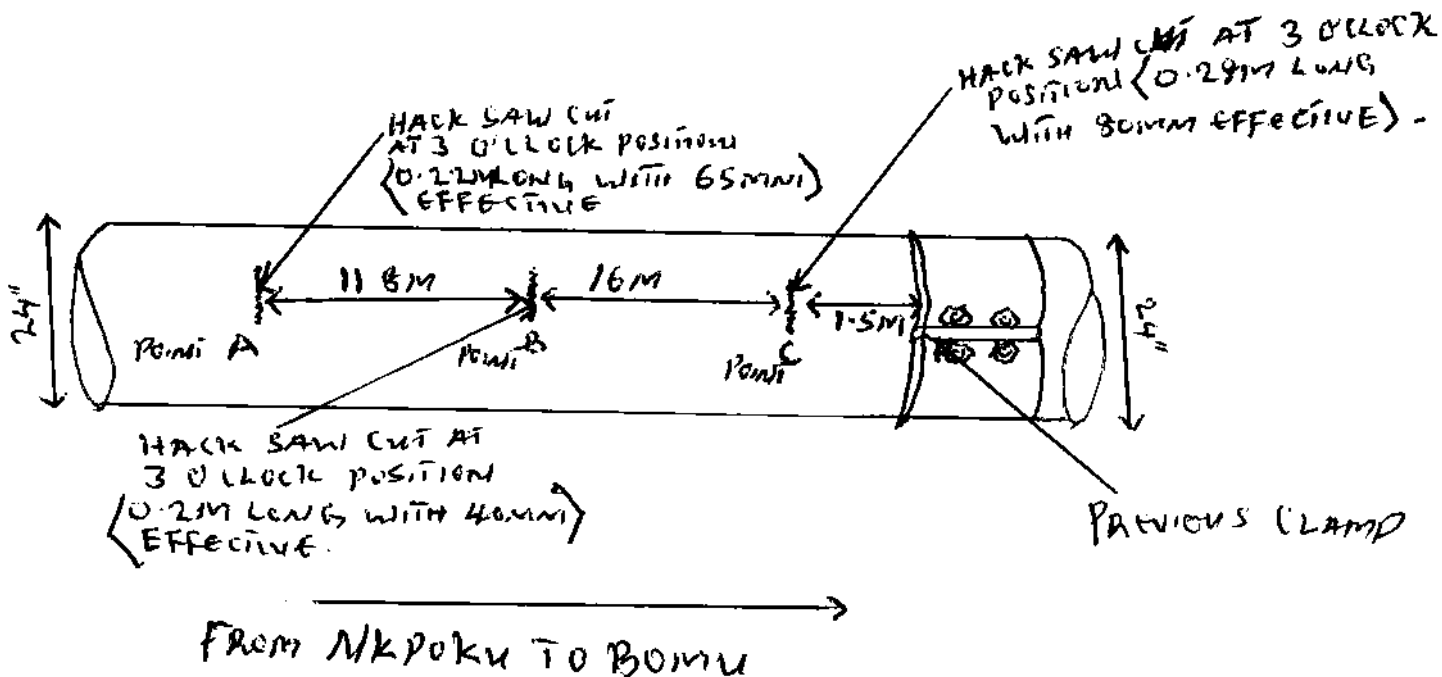 HACK SAW CUT AT 3 O'CLOCK
POSITION (0.28M LONG
WITH 80MM EFFECTIVE).
HACK SAW CUT
AT 3 O'CLOCK POSITION
(0.22M LONG WITH 65MM)
EFFECTIVE
24"
16M
1.5M
24"
POINT A
POINT B
POINT C
HACK SAW CUT AT
3 O'CLOCK POSITION
(0.2M LONG WITH 40MM)
EFFECTIVE.
PREVIOUS CLAMP
FROM NKPOKU TO BOMU